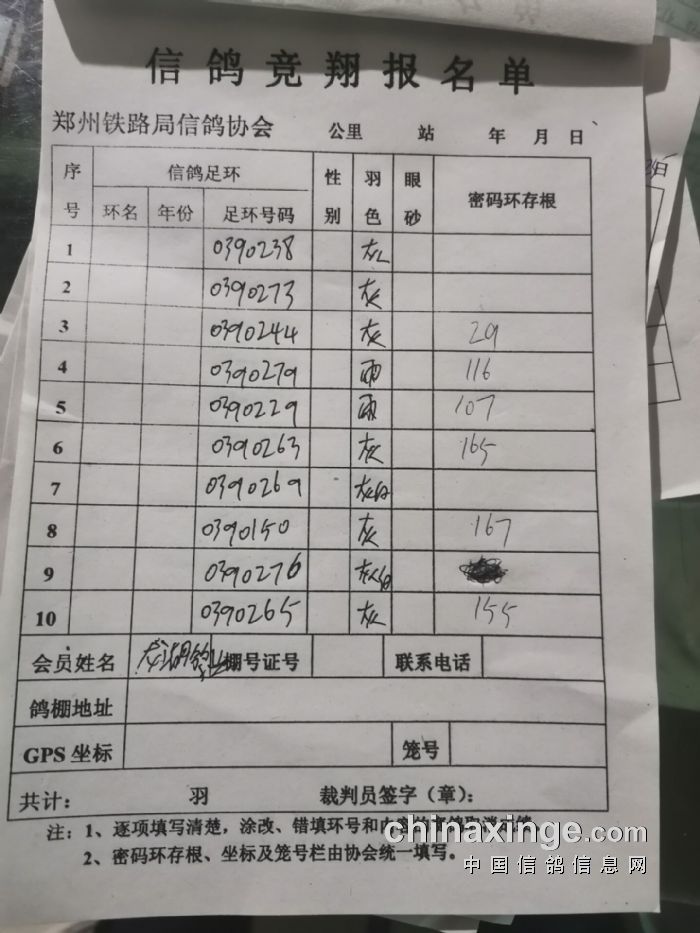 信鸽竞翔报名单
郑州铁路局信鸽协会 公里 站 年 月 日
序号 信鸽足环 性别 羽色 眼砂 密码环存根
环名 年份 足环号码
1 0390238 灰
2 0390273 灰
3 0390244 灰 29
4 0390279 雨 116
5 0390229 雨 107
6 0390263 灰 165
7 0390269 灰白
8 0390150 灰 167
9 0390276 灰白
10 0390265 灰 155
会员姓名 龙湖鸽业 棚号证号 联系电话
鸽棚地址
GPS 坐标 笼号
共计： 羽 裁判员签字（章）：
注：1、逐项填写清楚，涂改、错填环号和
chinaxinge.com
2、密码环存根、坐标及笼号栏由协会统一填写。
中国信鸽信息网